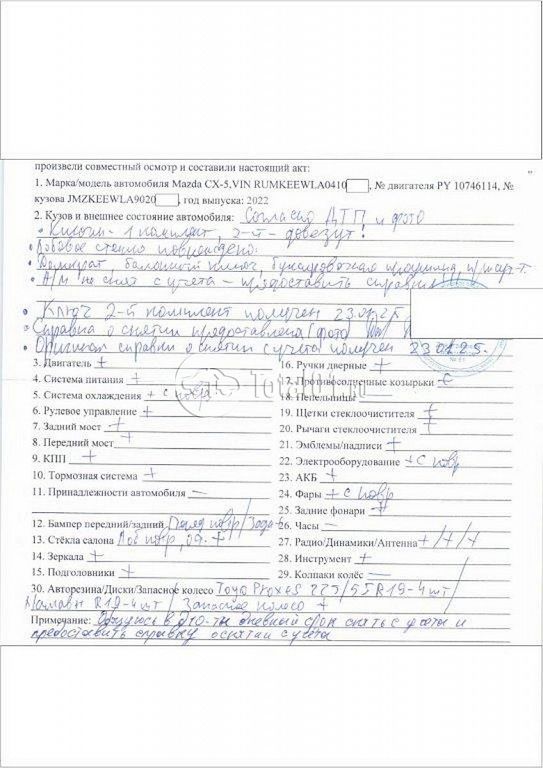 произвели совместный осмотр и составили настоящий акт:
1. Марка/модель автомобиля Mazda CX-5,VIN RUMKEEWLA0410 , № двигателя PY 10746114, №
кузова JMZKEEWLA9020 , год выпуска: 2022
2. Кузов и внешнее состояние автомобиля: Согласно ДТП и фото
• Ключи - 1 комплект, 2-й - довезут!
• Лобовое стекло повреждено.
• Домкрат, балонный ключ, буксировочная проушина,
• А/м не снят с учета - предоставить справку
• Ключ 2-й комплект получен 23.01.25
• Справка о снятии предоставлена (фото)
• Оригинал справки о снятии с учета получен 23.01.25.
3. Двигатель +
4. Система питания +
5. Система охлаждения + с повр
6. Рулевое управление +
7. Задний мост +
8. Передний мост +
9. КПП +
10. Тормозная система +
11. Принадлежности автомобиля —
12. Бампер передний/задний
13. Стёкла салона Лоб повр,
14. Зеркала +
15. Подголовники +
16. Ручки дверные +
17. Противосолнечные козырьки
18. Пепельницы
19. Щетки стеклоочистителя +
20. Рычаги стеклоочистителя +
21. Эмблемы/надписи +
22. Электрооборудование + с повр
23. АКБ +
24. Фары + с повр
25. Задние фонари +
26. Часы —
27. Радио/Динамики/Антенна +/+/+
28. Инструмент +
29. Колпаки колёс —
30. Авторезина/Диски/Запасное колесо Toyo Proxes 225/55 R19-4шт/
R19-4шт / Запасное колесо +
Примечание: Обязуюсь в дневный срок снять с учета и
предоставить справку о снятии с учета
Total01.ru